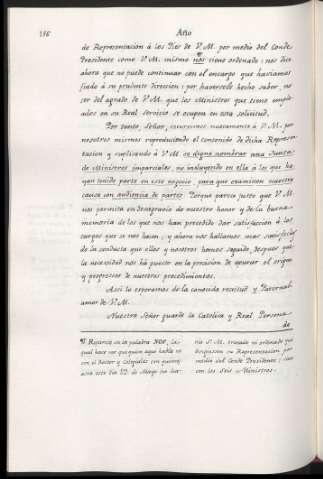 156
Año
de Representacion à los Pies de V. M. por medio del Conde
Presidente como V. M. mismo nos tiene ordenado; nos dice
ahora que no puede continuar con el encargo que haviamos
fiado à su prudente direccion; por haversele hecho saber, no
ser del agrado de V. M. que los Ministros que tiene emple-
ados en su Real servicio se ocupen en esta solicitud.
Por tanto, Señor, recurrimos nuevamente à V. M. por
nosotros mismos reproduciendo el contenido de dicha Represen-
tacion y suplicando à V. M. se digne nombrar una Junta
de Ministros imparciales, no incluyendo en ella à los que ha-
yan tenido parte en este negocio para que examinen nuestra
causa con audiencia de partes. Porque parece justo que V. M.
nos permita en desagravio de nuestro honor y de la buena
memoria de los que nos han precedido dar satisfaccion à los
cargos que se nos hacen; y ahora nos hallamos mas satisfechos
de la conducta que ellos y nosotros hemos seguido, despues que
la necesidad nos ha puesto en la precision de apurar el origen
y progresos de nuestros procedimientos.
Asi lo esperamos de la conocida rectitud y Paternal
amor de V. M.
Nuestro Señor guarde la Catolica y Real Persona
de
¶ Reparese en la palabra NOS, la
qual hace ver que quien aqui habla es
con el Rector y Colegiales con quienes
acia este dia de Mayo no ha-
via S. M. tratado ni ordenado que
dirigiesen su Representacion por
medio del Conde Presidente; sino
con los Seis Ministros.